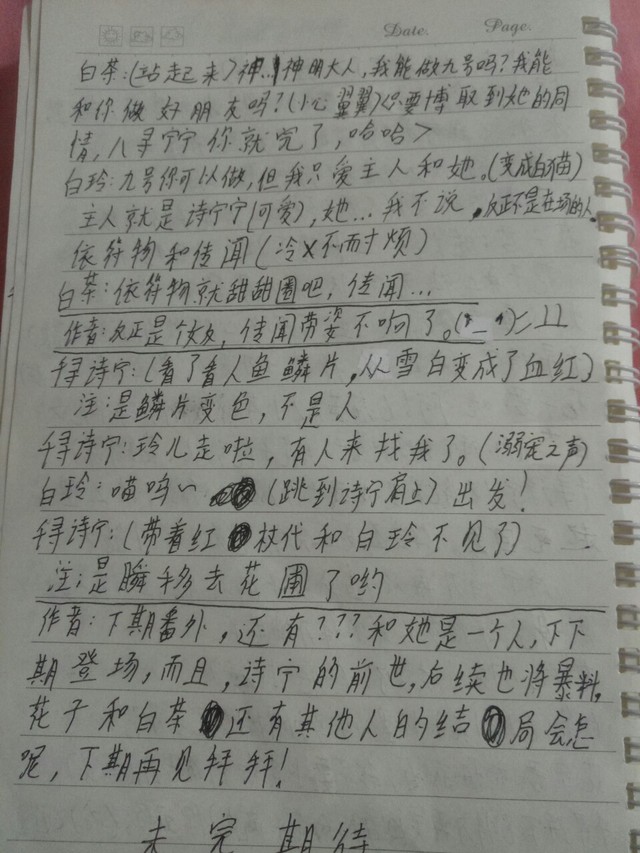 Date. Page.
白茶:(站起来)神...神明大人,我能做九号吗?我能
和你做好朋友吗?(小心翼翼)<只要博取到她的同
情,八寻宁宁你就完了,哈哈>
白玲:九号你可以做,但我只爱主人和她。(变成白猫)
主人就是诗宁宁(可爱),她...我不说,反正不是在场的人
依符物和传闻(冷 不耐烦)
白茶:依符物就甜甜圈吧,传闻...
作者:反正是个女,传闻带姿不响了。
千寻诗宁:(看了看人鱼鳞片,从雪白变成了血红)
注:是鳞片变色,不是人
千寻诗宁:玲儿走啦,有人来找我了。(溺宠之声)
白玲:喵呜~(跳到诗宁肩上)出发!
千寻诗宁:(带着红枝代和白玲不见了)
注:是瞬移去花圃了哟
作者:下期番外,还有???和她是一个人,下下
期登场,而且,诗宁的前世,后续也将暴料,
花子和白茶还有其他人的结局会怎
呢,下期再见拜拜!
未完期待